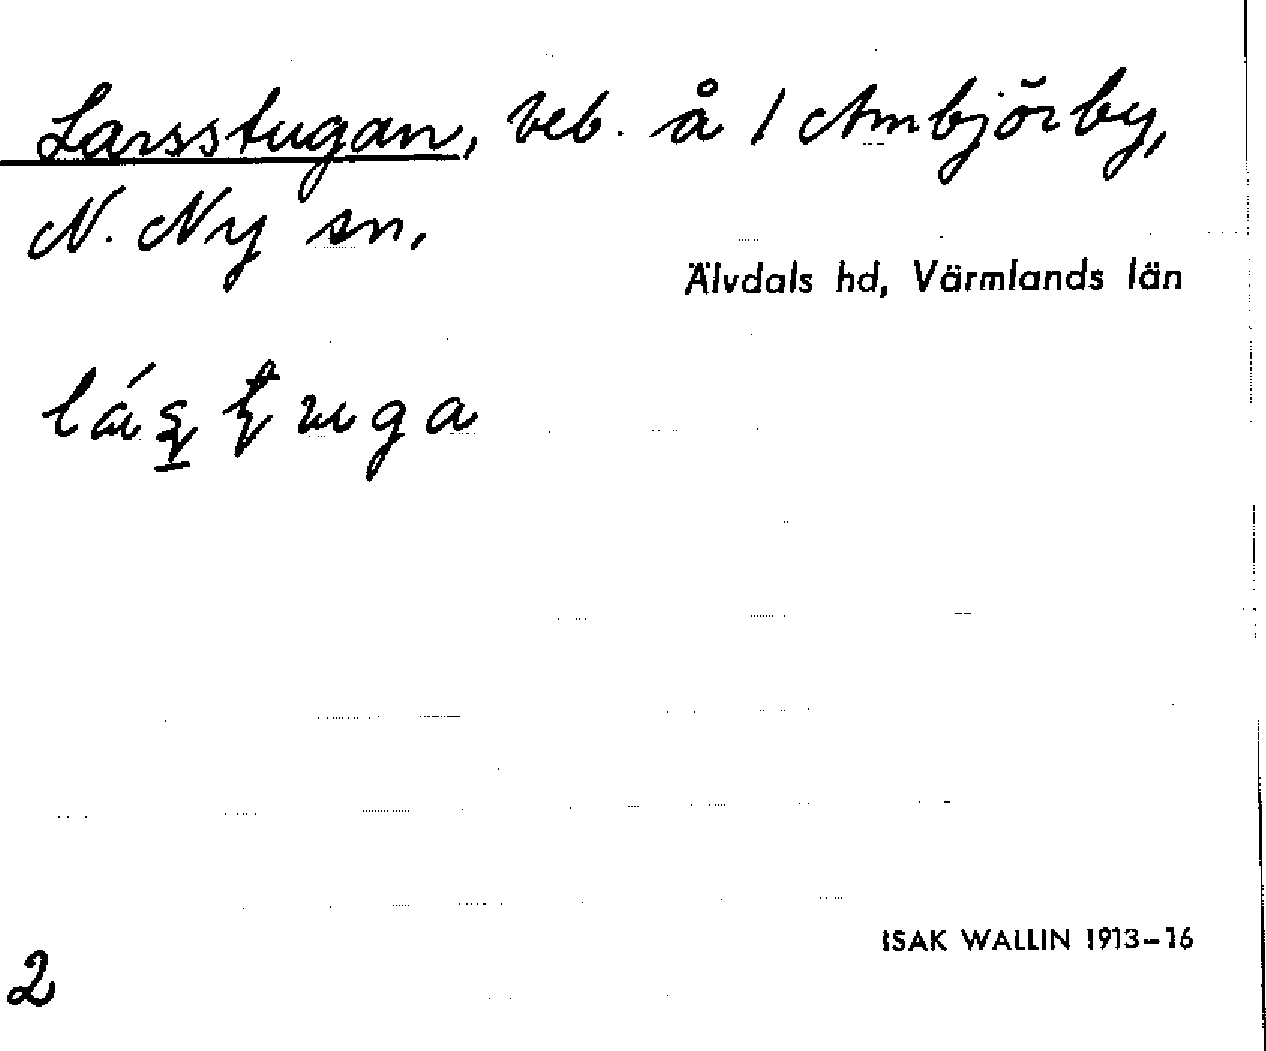 Larsstugan, beb. å 1 Ambjörby,
N. Ny sn,
Älvdals hd, Värmlands län
ISAK WALLIN 1913–16
2